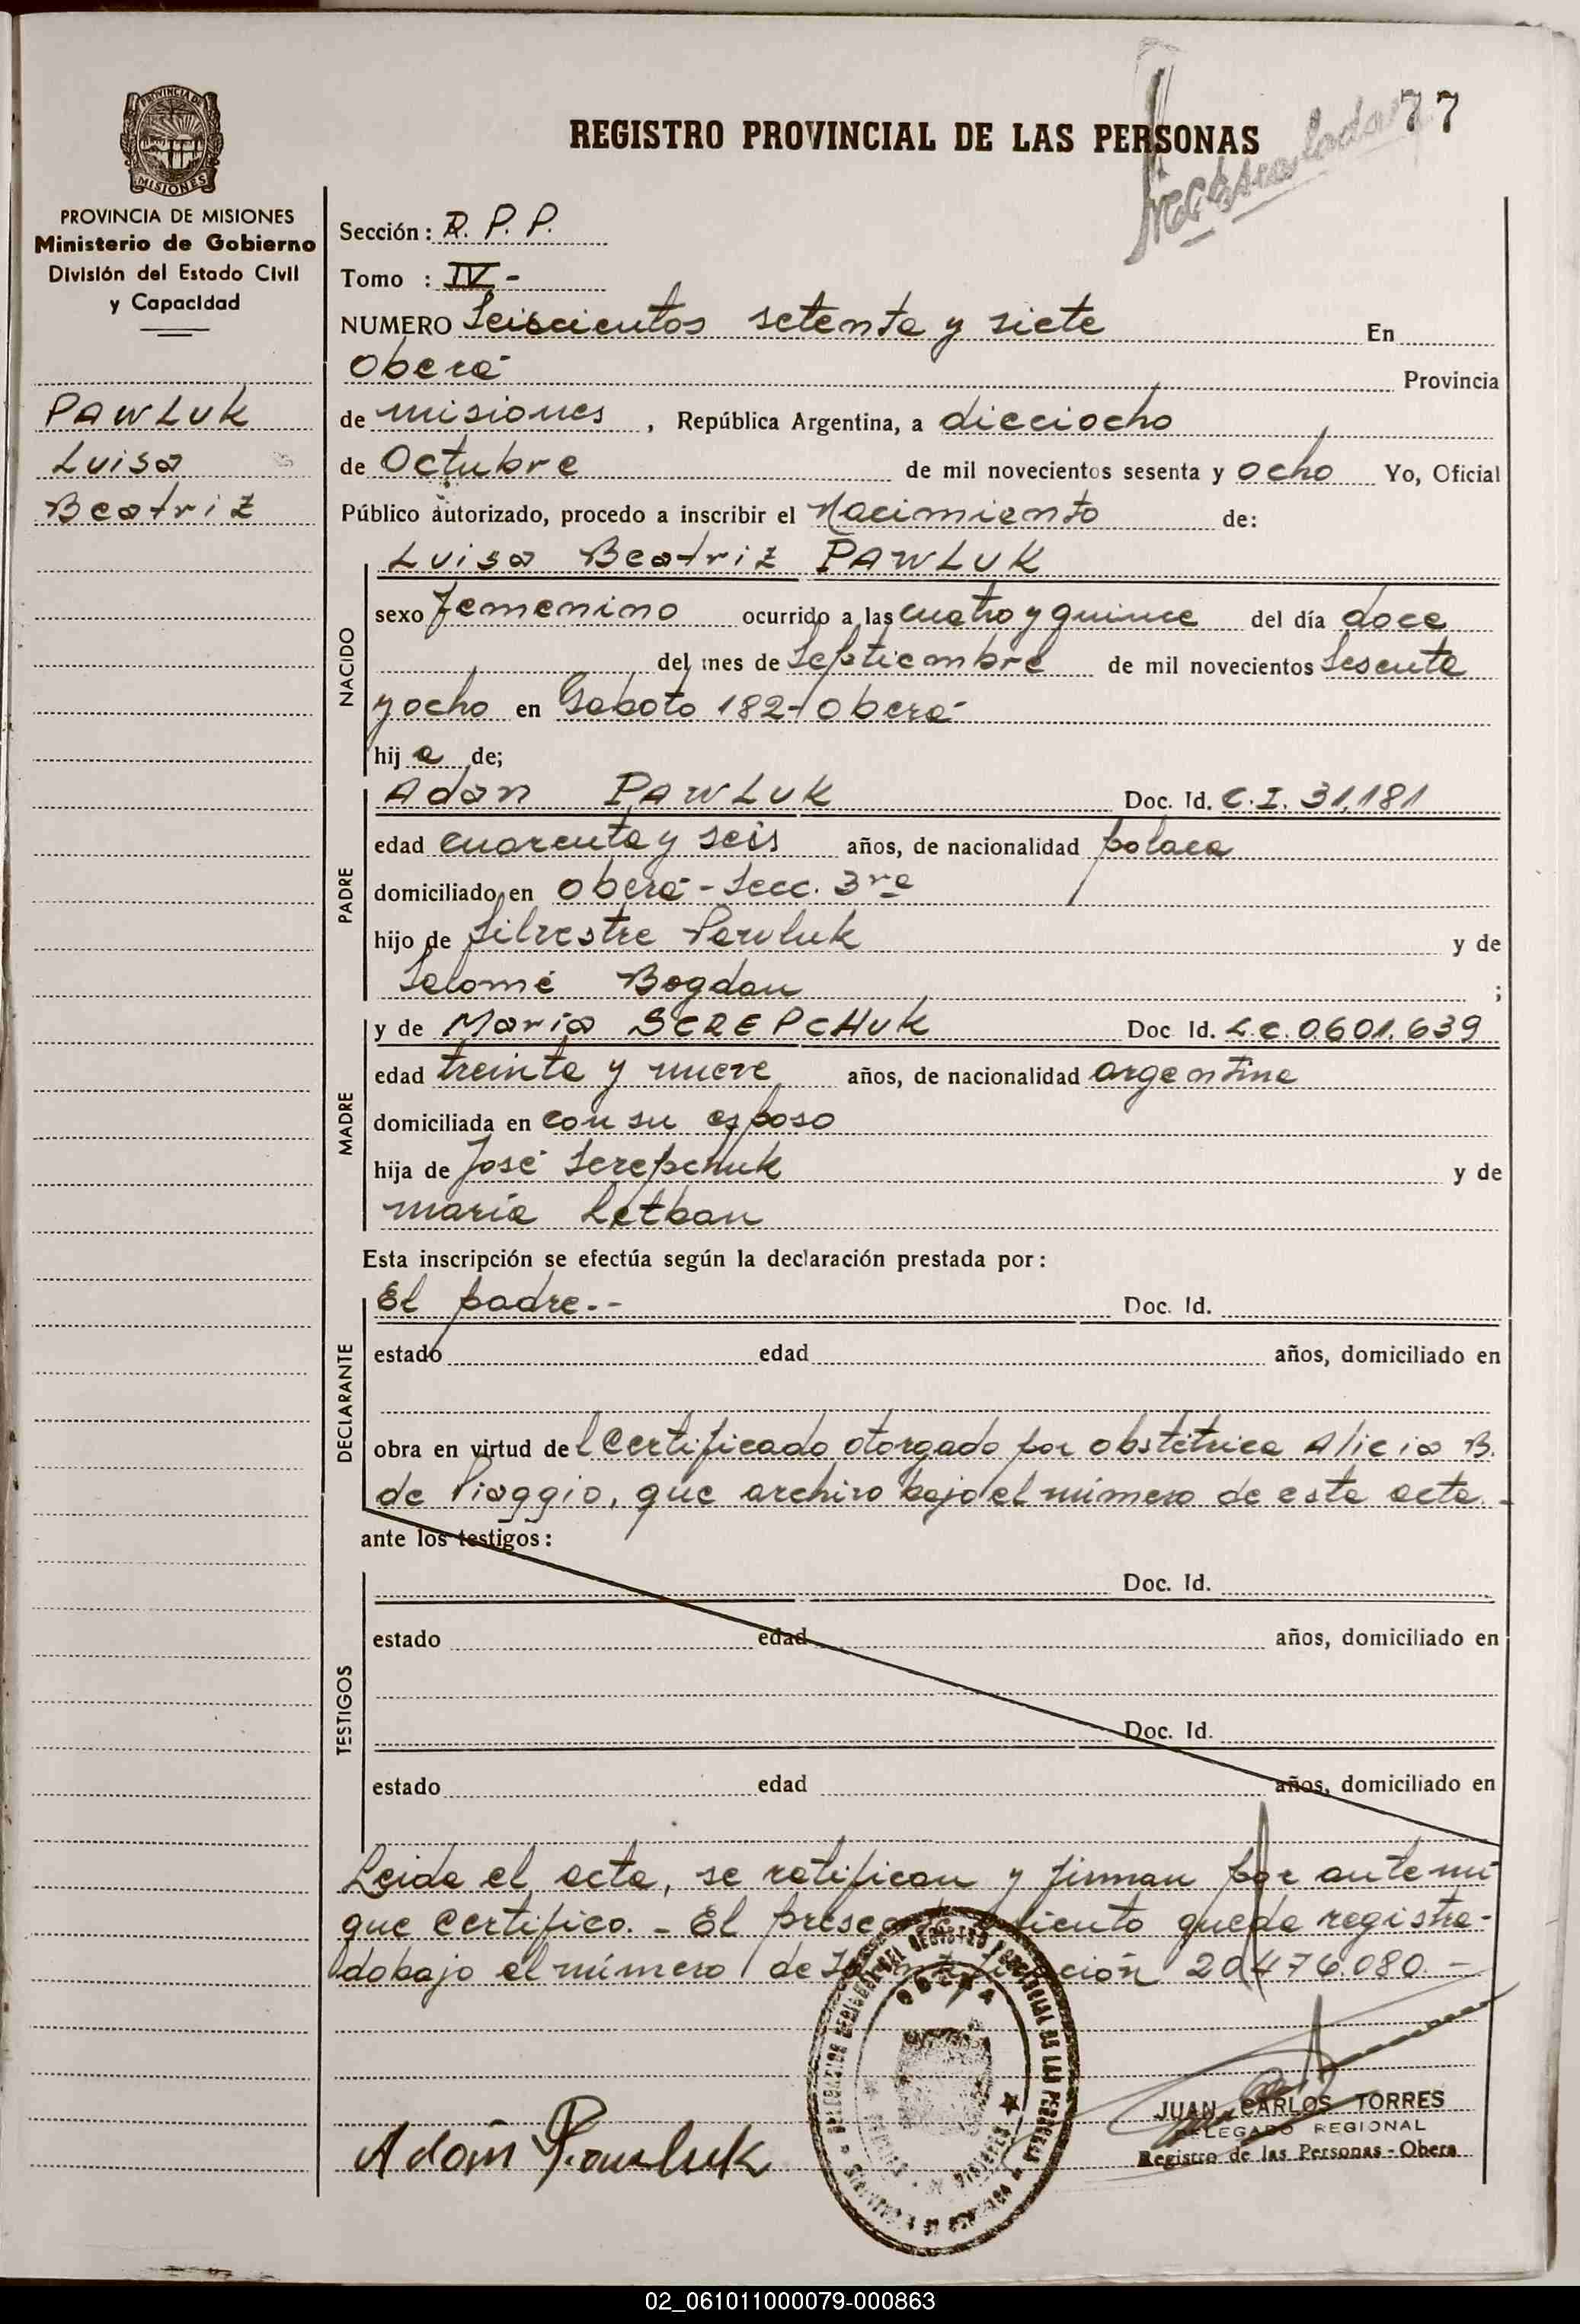 77
REGISTRO PROVINCIAL DE LAS PERSONAS
PROVINCIA DE
MISIONES
PROVINCIA DE MISIONES
Ministerio de Gobierno
División del Estado Civil
y Capacidad
PAWLUK
Luisa
Beatriz
Sección: R. P. P.
Tomo : IV-
NUMERO Seiscientos setenta y siete En
Oberá Provincia
de misiones, República Argentina, a dieciocho
de Octubre de mil novecientos sesenta y ocho Yo, Oficial
Público autorizado, procedo a inscribir el Nacimiento de:
NACIDO
Luisa Beatriz PAWLUK
sexo femenino ocurrido a las cuatro y quince del día doce
del mes de Septiembre de mil novecientos sesenta
y ocho en Gaboto 182-Oberá-
hija de;
PADRE
Adan PAWLUK Doc. Id. C.I. 31.181
edad cuarenta y seis años, de nacionalidad polaca
domiciliado en Oberá - Secc. 3ra
hijo de Silvestre Pawluk y de
Salomé Bogdan ;
MADRE
y de Maria SCREPCHUK Doc Id. L.C. 0.601.639
edad treinta y nueve años, de nacionalidad argentina
domiciliada en con su esposo
hija de José Screpchuk y de
maría
Esta inscripción se efectúa según la declaración prestada por:
DECLARANTE
El padre.- Doc. Id.
estado edad años, domiciliado en
obra en virtud del Certificado otorgado por obstétrica Alicia B.
de Piaggio, que archivo bajo el número de este acta.-
ante los testigos:
TESTIGOS
Doc. Id.
estado edad años, domiciliado en
Doc. Id.
estado edad años, domiciliado en
Leida el acta, se ratifican y firman por ante mí
que certifico. - El presente asiento queda registra-
do bajo el número de Identificación 20.476.080. -
OBERA
Adam Pawluk
JUAN CARLOS TORRES
DELEGADO REGIONAL
Registro de las Personas - Obera
02_061011000079-000863